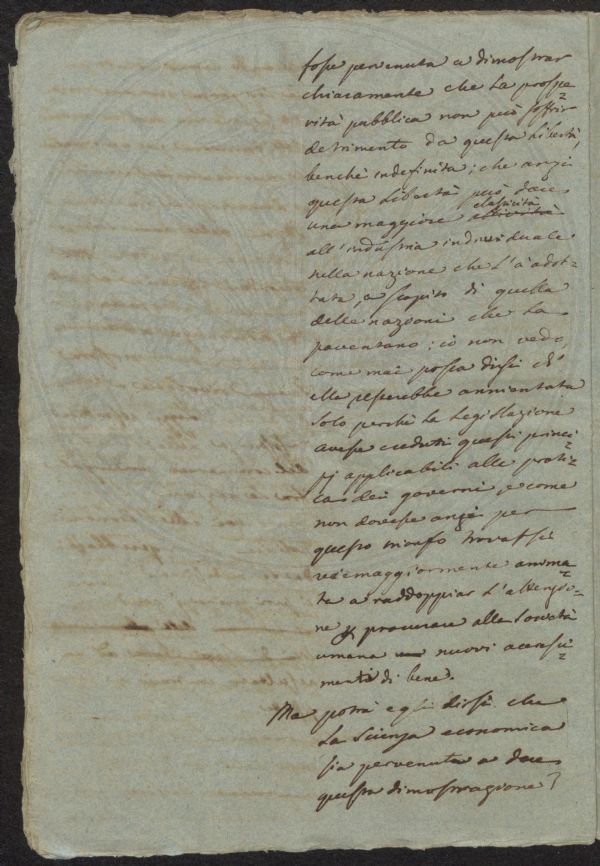 fosse pervenuta a dimostrar
chiaramente che la prospe=
rità pubblica non può soffrir
detrimento da questa libertà,
benchè indefinita; che anzi
questa libertà può dare
una maggiore elasticità
all'industria individuale
nella nazione che l'à adot=
tata, a scapito di quella
delle nazioni che la
paventano; io non vedo
come mai possa dirsi ch'
ella resterebbe annientata
solo perchè la legislazione
avesse creduti questi princi=
pj applicabili alla prati=
ca dei governi, e come
non dovesse anzi per
questo trionfo trovarsi
maggiormente anima=
ta a raddoppiar l'attenzio=
ne procurare alla società
umana nuovi accresci=
menti di bene.
Ma potrà egli dirsi che
la scienza economica
sia pervenuta a dare
questa dimostrazione?